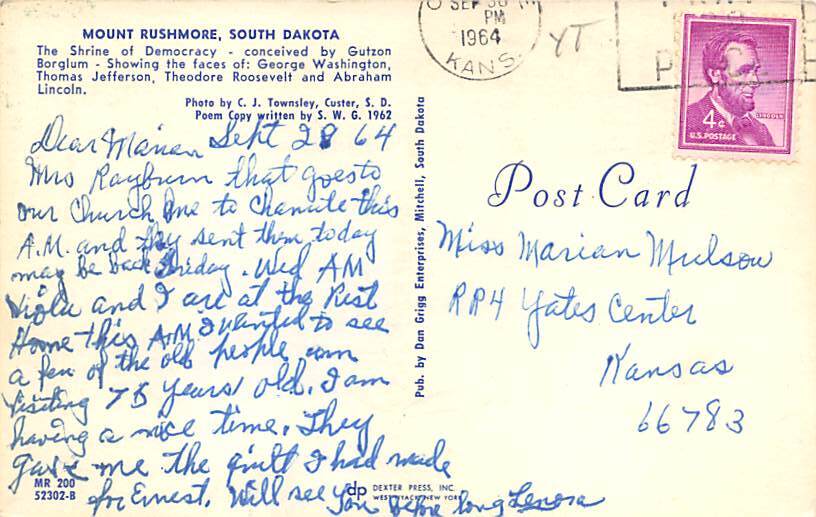 MOUNT RUSHMORE, SOUTH DAKOTA
The Shrine of Democracy - conceived by Gutzon
Borglum - Showing the faces of: George Washington,
Thomas Jefferson, Theodore Roosevelt and Abraham
Lincoln.
Photo by C. J. Townsley, Custer, S. D.
Poem Copy written by S. W. G. 1962
Dear Marian Sept 28 64
Mrs Rayburn that goes to
our Church to Chanute this
A.M. and they sent them today
may be back Friday. Wed AM
Viola and I are at the Rest
Home this A.M. I wanted to see
a few of the old people am
visiting 75 years old. I am
having a nice time. They
gave me the quilt I had made
for Ernest. Will see you before long Lenora
MR 200
52302-B
dp DEXTER PRESS, INC.
WEST NYACK, NEW YORK
Pub. by Dan Grigg Enterprises, Mitchell, South Dakota
SEP 30
PM
1964
KANS.
YT
4¢
LINCOLN
U.S. POSTAGE
Post Card
Miss Marian Mulsow
RR4 Yates Center
Kansas
66783